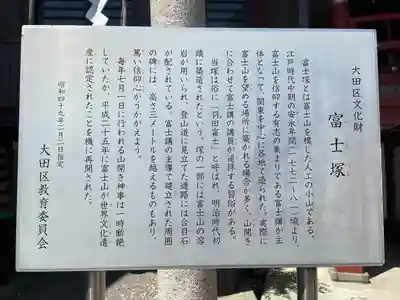 大田区文化財
富士塚
富士塚とは富士山を模した人工の小山である。
江戸時代中期の安永年間(一七七二〜八一)頃より、
富士山を信仰する有志の集まりである富士講が主
体となって、関東を中心に各地で造られた。実際に
富士山を望める場所に築かれる場合が多く、山開き
に合わせて富士講の講員が遥拝する習俗がある。
当塚は俗に「羽田富士」と呼ばれ、明治時代初
頭に築造されたという。塚の一部には富士山の溶
岩が用いられ、登山道に見立てた道路には合目石
が配されている。富士講の主導で建立された周囲
の碑には、高さ三メートルを越えるものもあり、
篤い信仰心がうかがえよう。
毎年七月一日に行われる山開き神事は一時断絶
していたが、平成二十五年に富士山が世界文化遺
産に認定されたことを機に再開された。
昭和四十九年二月二日指定
大田区教育委員会